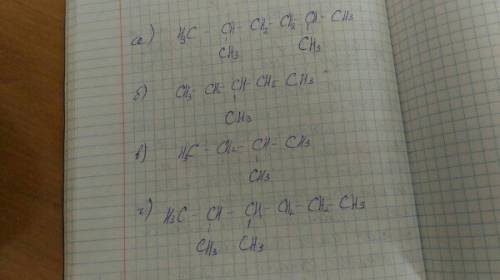 а) H₃C - CH - CH₂ - CH₂ - CH - CH₃
CH₃ CH₃
б) CH₃ - CH - CH - CH₂ - CH₃
CH₃
в) H₃C - CH₂ - CH - CH₃
CH₃
г) H₃C - CH - CH - CH₂ - CH₂ - CH₃
CH₃ CH₃